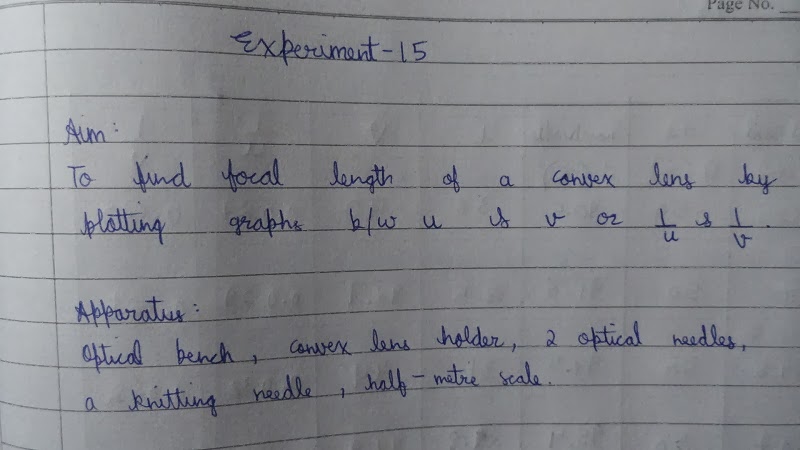 Page No.
Experiment-15
Aim:
To find focal length of a convex lens by
plotting graphs b/w u & v or 1/u & 1/v.
Apparatus:
Optical bench, convex lens holder, 2 optical needles,
a knitting needle, half-metre scale.